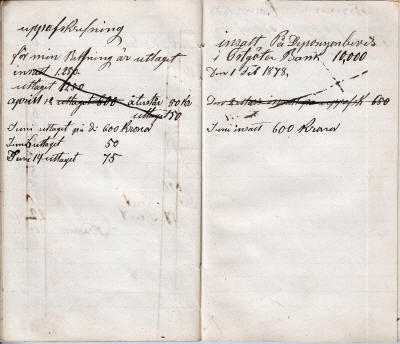 uppafskrifning
för min Räkning är uttaget
insatt 1250
uttaget 1250
aprill 12 uttaget 600 återstår 50 kr
uttaget 50
Juni uttaget på d: 600 Kronor
Juni uttaget 50
Juni 14 uttaget 75
insatt På Deponenbevis
i Östgöta Bank 10,000
Den 1 Feb 1878,
650
Juni insatt 600 Kronor